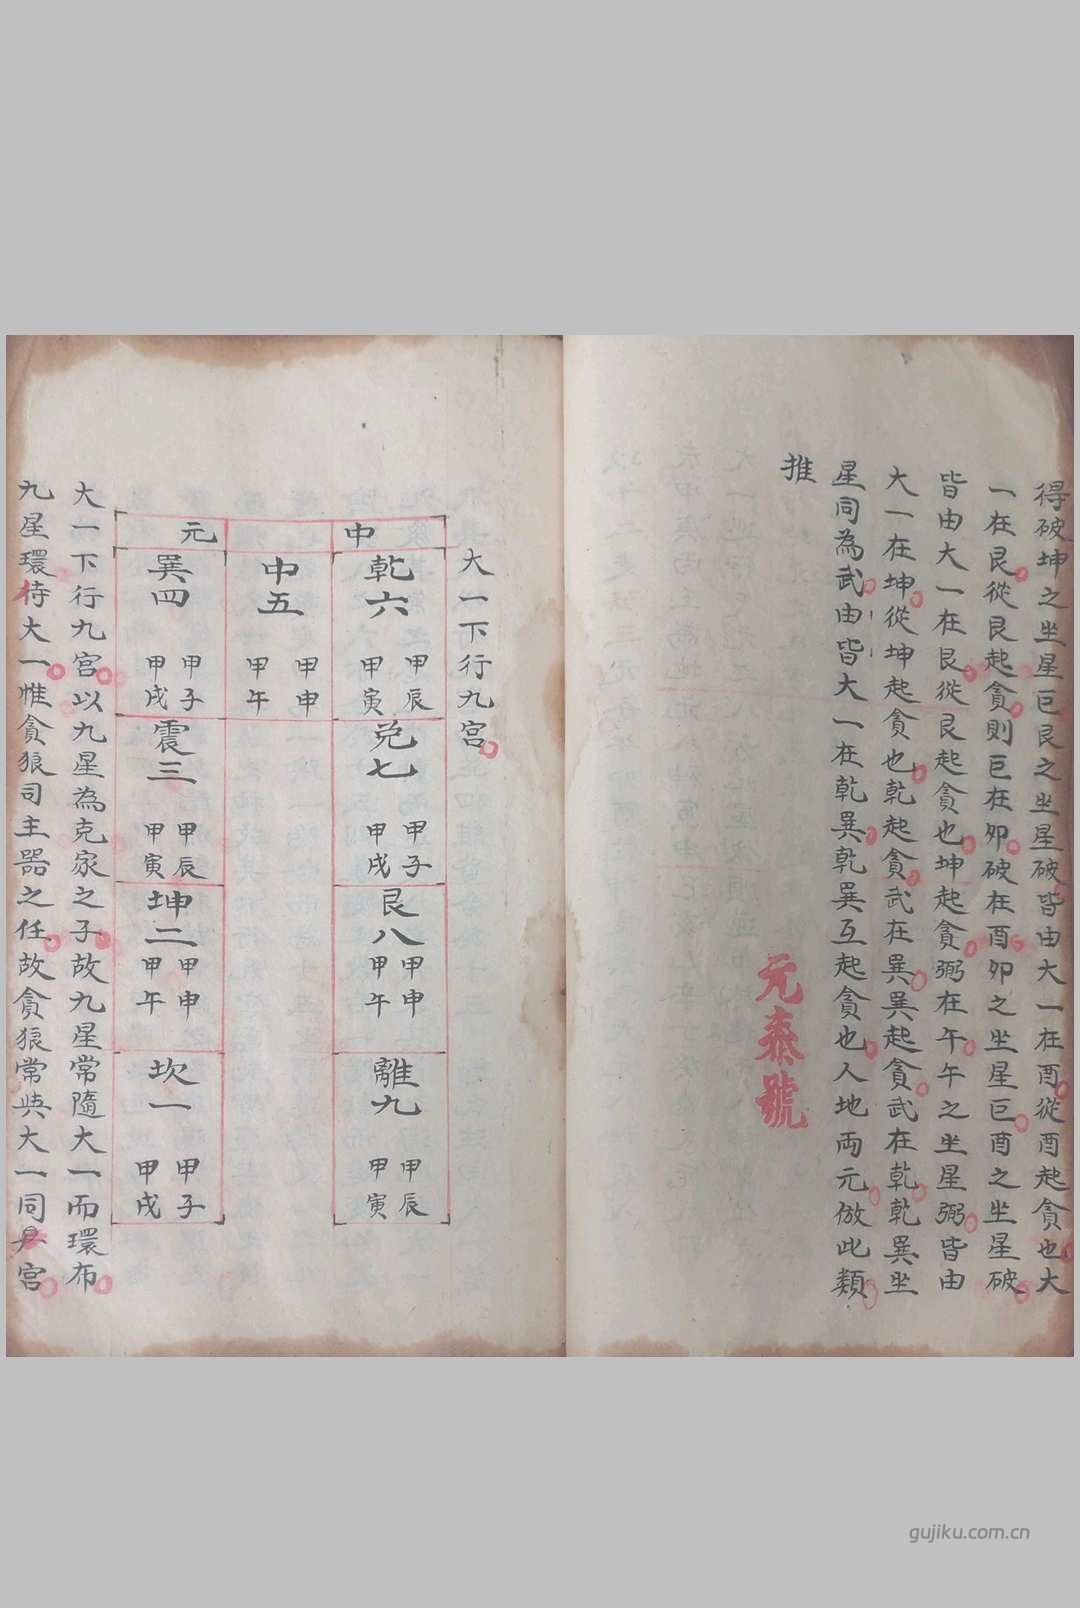 得破坤之坐星巨艮之坐星破皆由大一在酉從酉起貪也大
一在艮從艮起貪則巨在夘破在酉夘之坐星巨酉之坐星破
皆由大一在艮從艮起貪也坤起貪弼在午午之坐星弼皆由
大一在坤從坤起貪也乾起貪武在巽巽起貪武在乾乾巽坐
星同為武由皆大一在乾巽乾巽互起貪也人地両元倣此類
推
元泰號
大一下行九宮
中
元
乾六
甲辰
甲寅
兌七
甲子
甲戌
艮八
甲申
甲午
離九
甲辰
甲寅
中五
甲申
甲午
巽四
甲子
甲戌
震三
甲辰
甲寅
坤二
甲申
甲午
坎一
甲子
甲戌
大一下行九宮以九星為克家之子故九星常隨大一而環布
九星環侍大一惟貪狼司主器之任故貪狼常與大一同宮
gujiku.com.cn